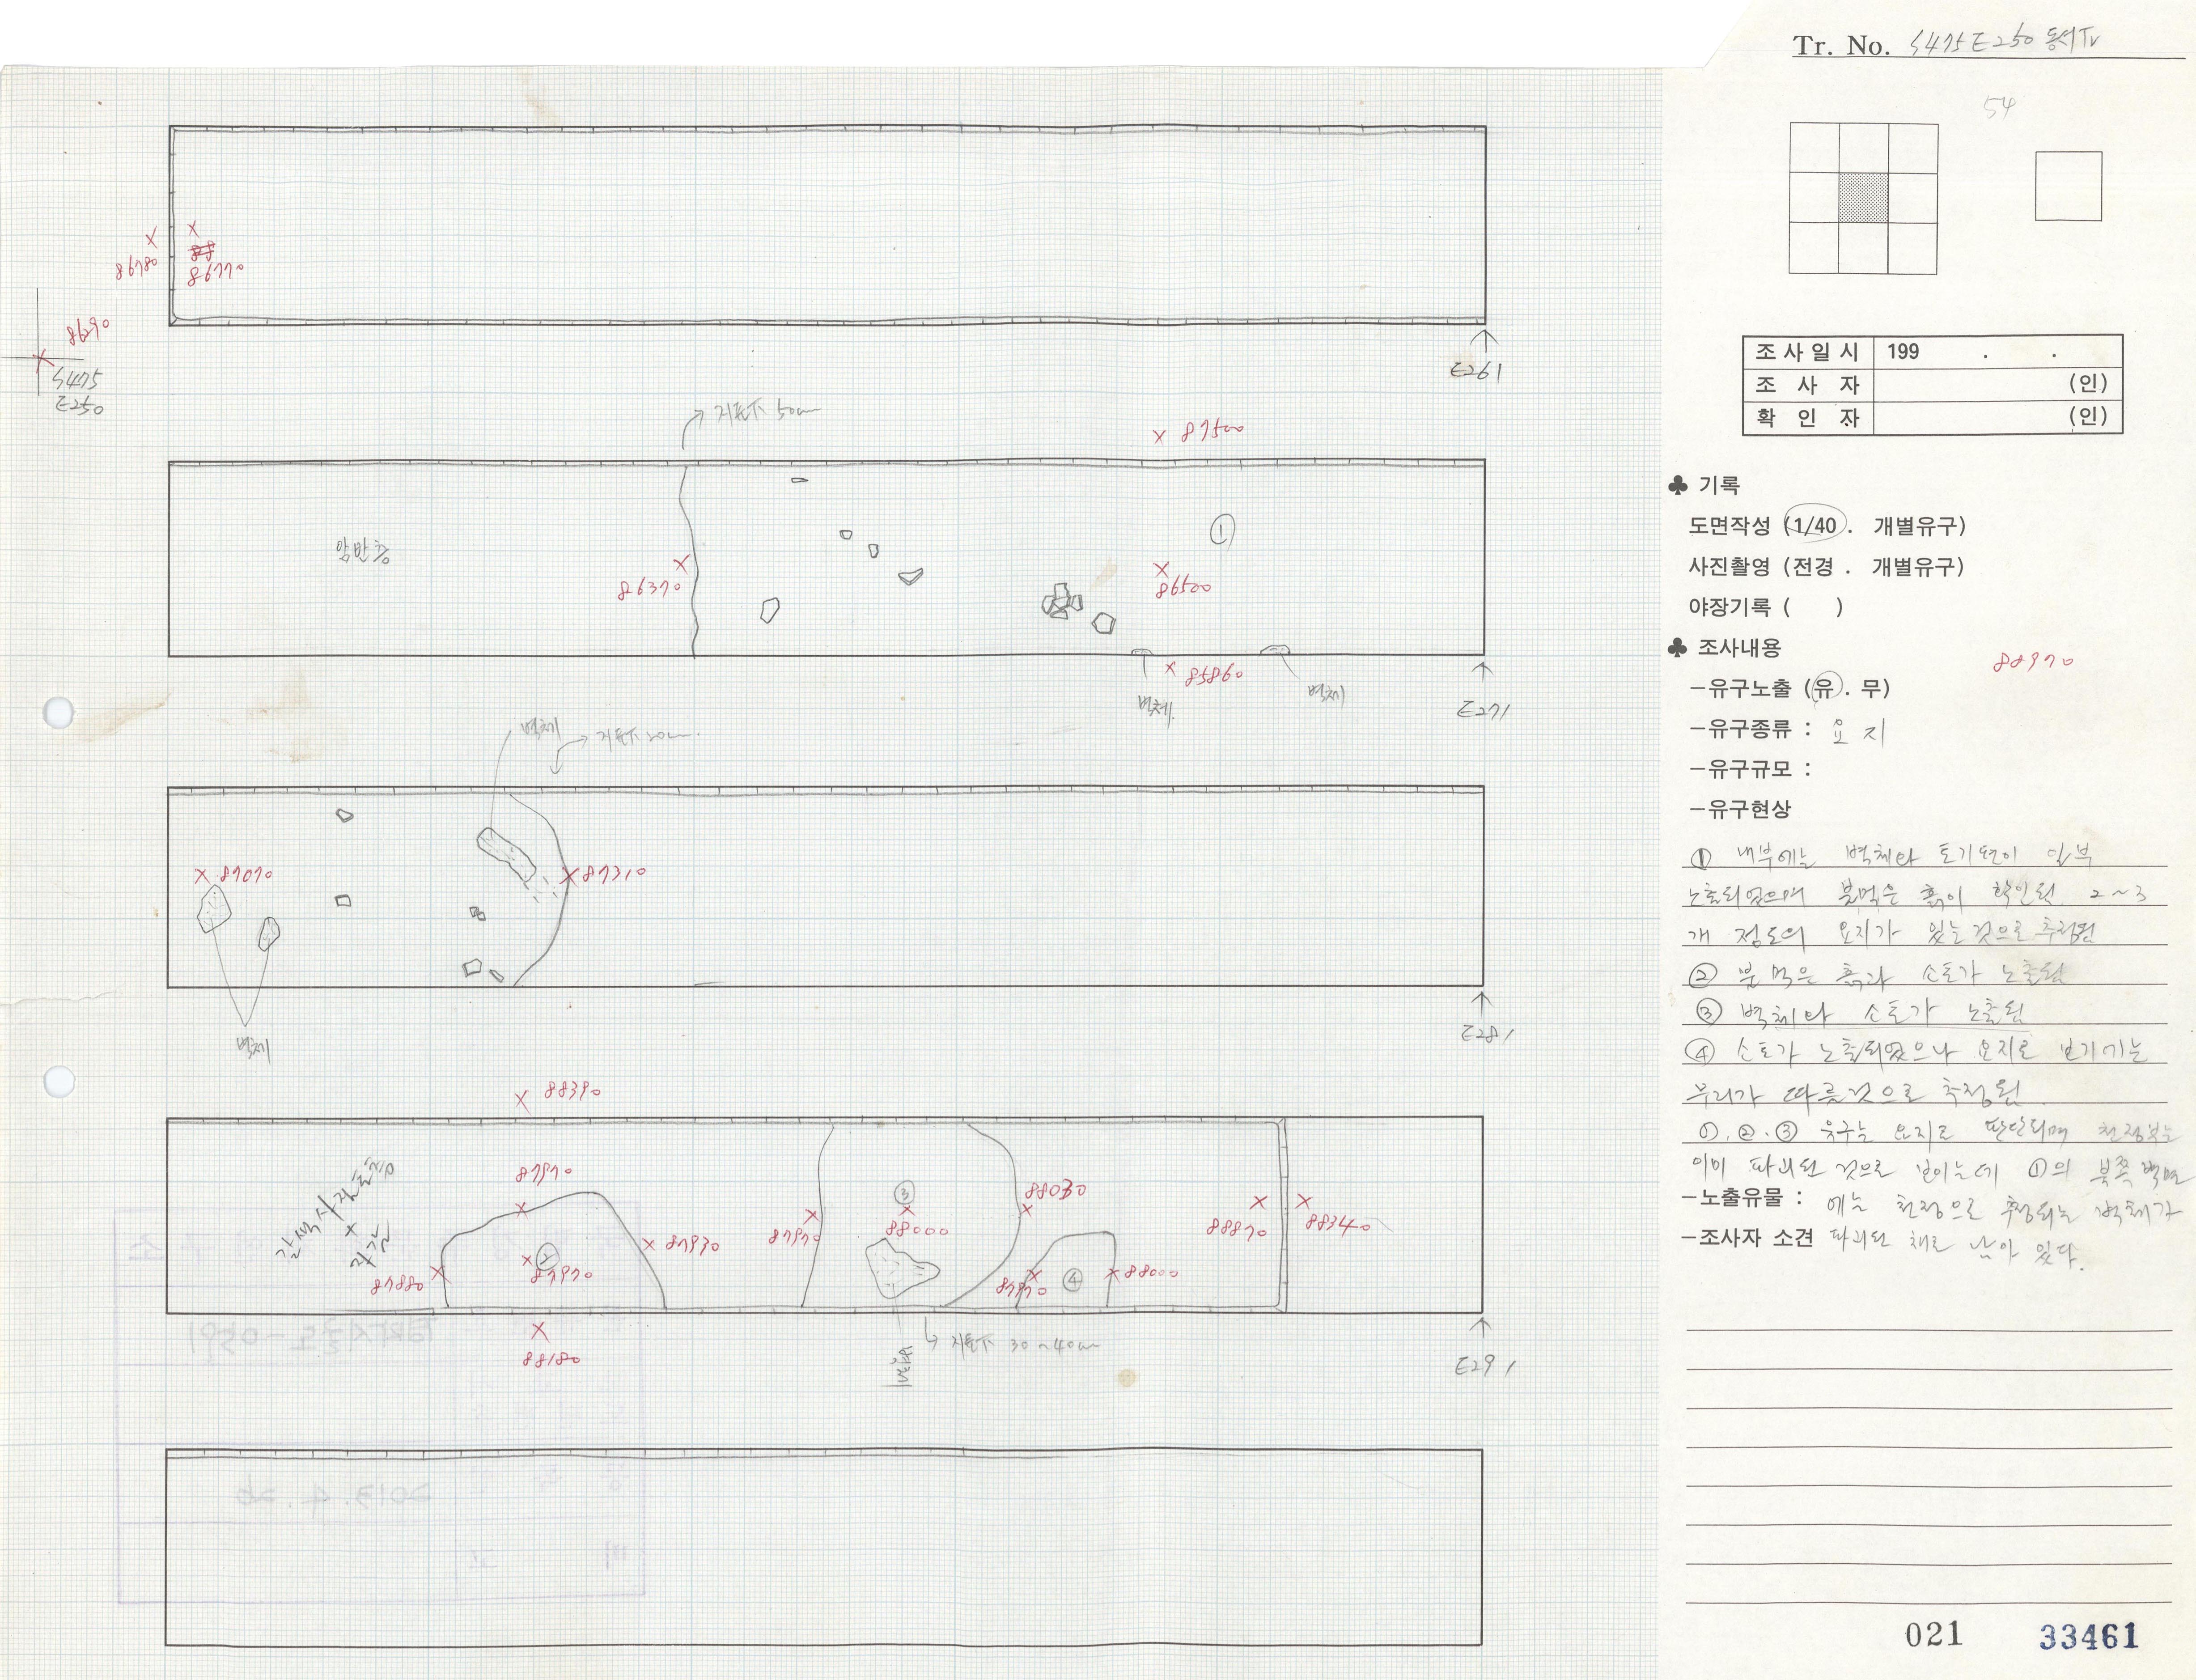 Tr. No. S475 E250 동서Tr
54
86780
86770
86290
S475
E250
E261
지표下 50cm
87500
암반층
86370
①
86500
85860
벽체
벽체
E271
벽체
지표下 20cm
87070
87310
벽체
E281
88390
87970
갈색사질토
+
88030
③
88000
87970
88870
88340
87930
②
87970
87880
87970
④
88000
88180
벽체
지표下 30~40cm
E291
조사일시 199 . .
조 사 자 (인)
확 인 자 (인)
♣ 기록
도면작성 (1/40 . 개별유구)
사진촬영 (전경 . 개별유구)
야장기록 ( )
♣ 조사내용
88970
-유구노출 (유 . 무)
-유구종류 : 요지
-유구규모 :
-유구현상
① 내부에는 벽체와 토기편이 일부
노출되었으며 불먹은 흙이 확인됨. 2~3
개 정도의 요지가 있는것으로 추정됨
② 불먹은 흙과 소토가 노출됨
③ 벽체와 소토가 노출됨
④ 소토가 노출되었으나 요지로 보기에는
무리가 따를것으로 추정됨.
①.②.③ 유구는 요지로 판단되며 천정부는
이미 파괴된 것으로 보이는데 ①의 북쪽 벽면
-노출유물 : 에는 천정으로 추정되는 벽체가
-조사자 소견 파괴된 채로 남아 있다.
021 33461